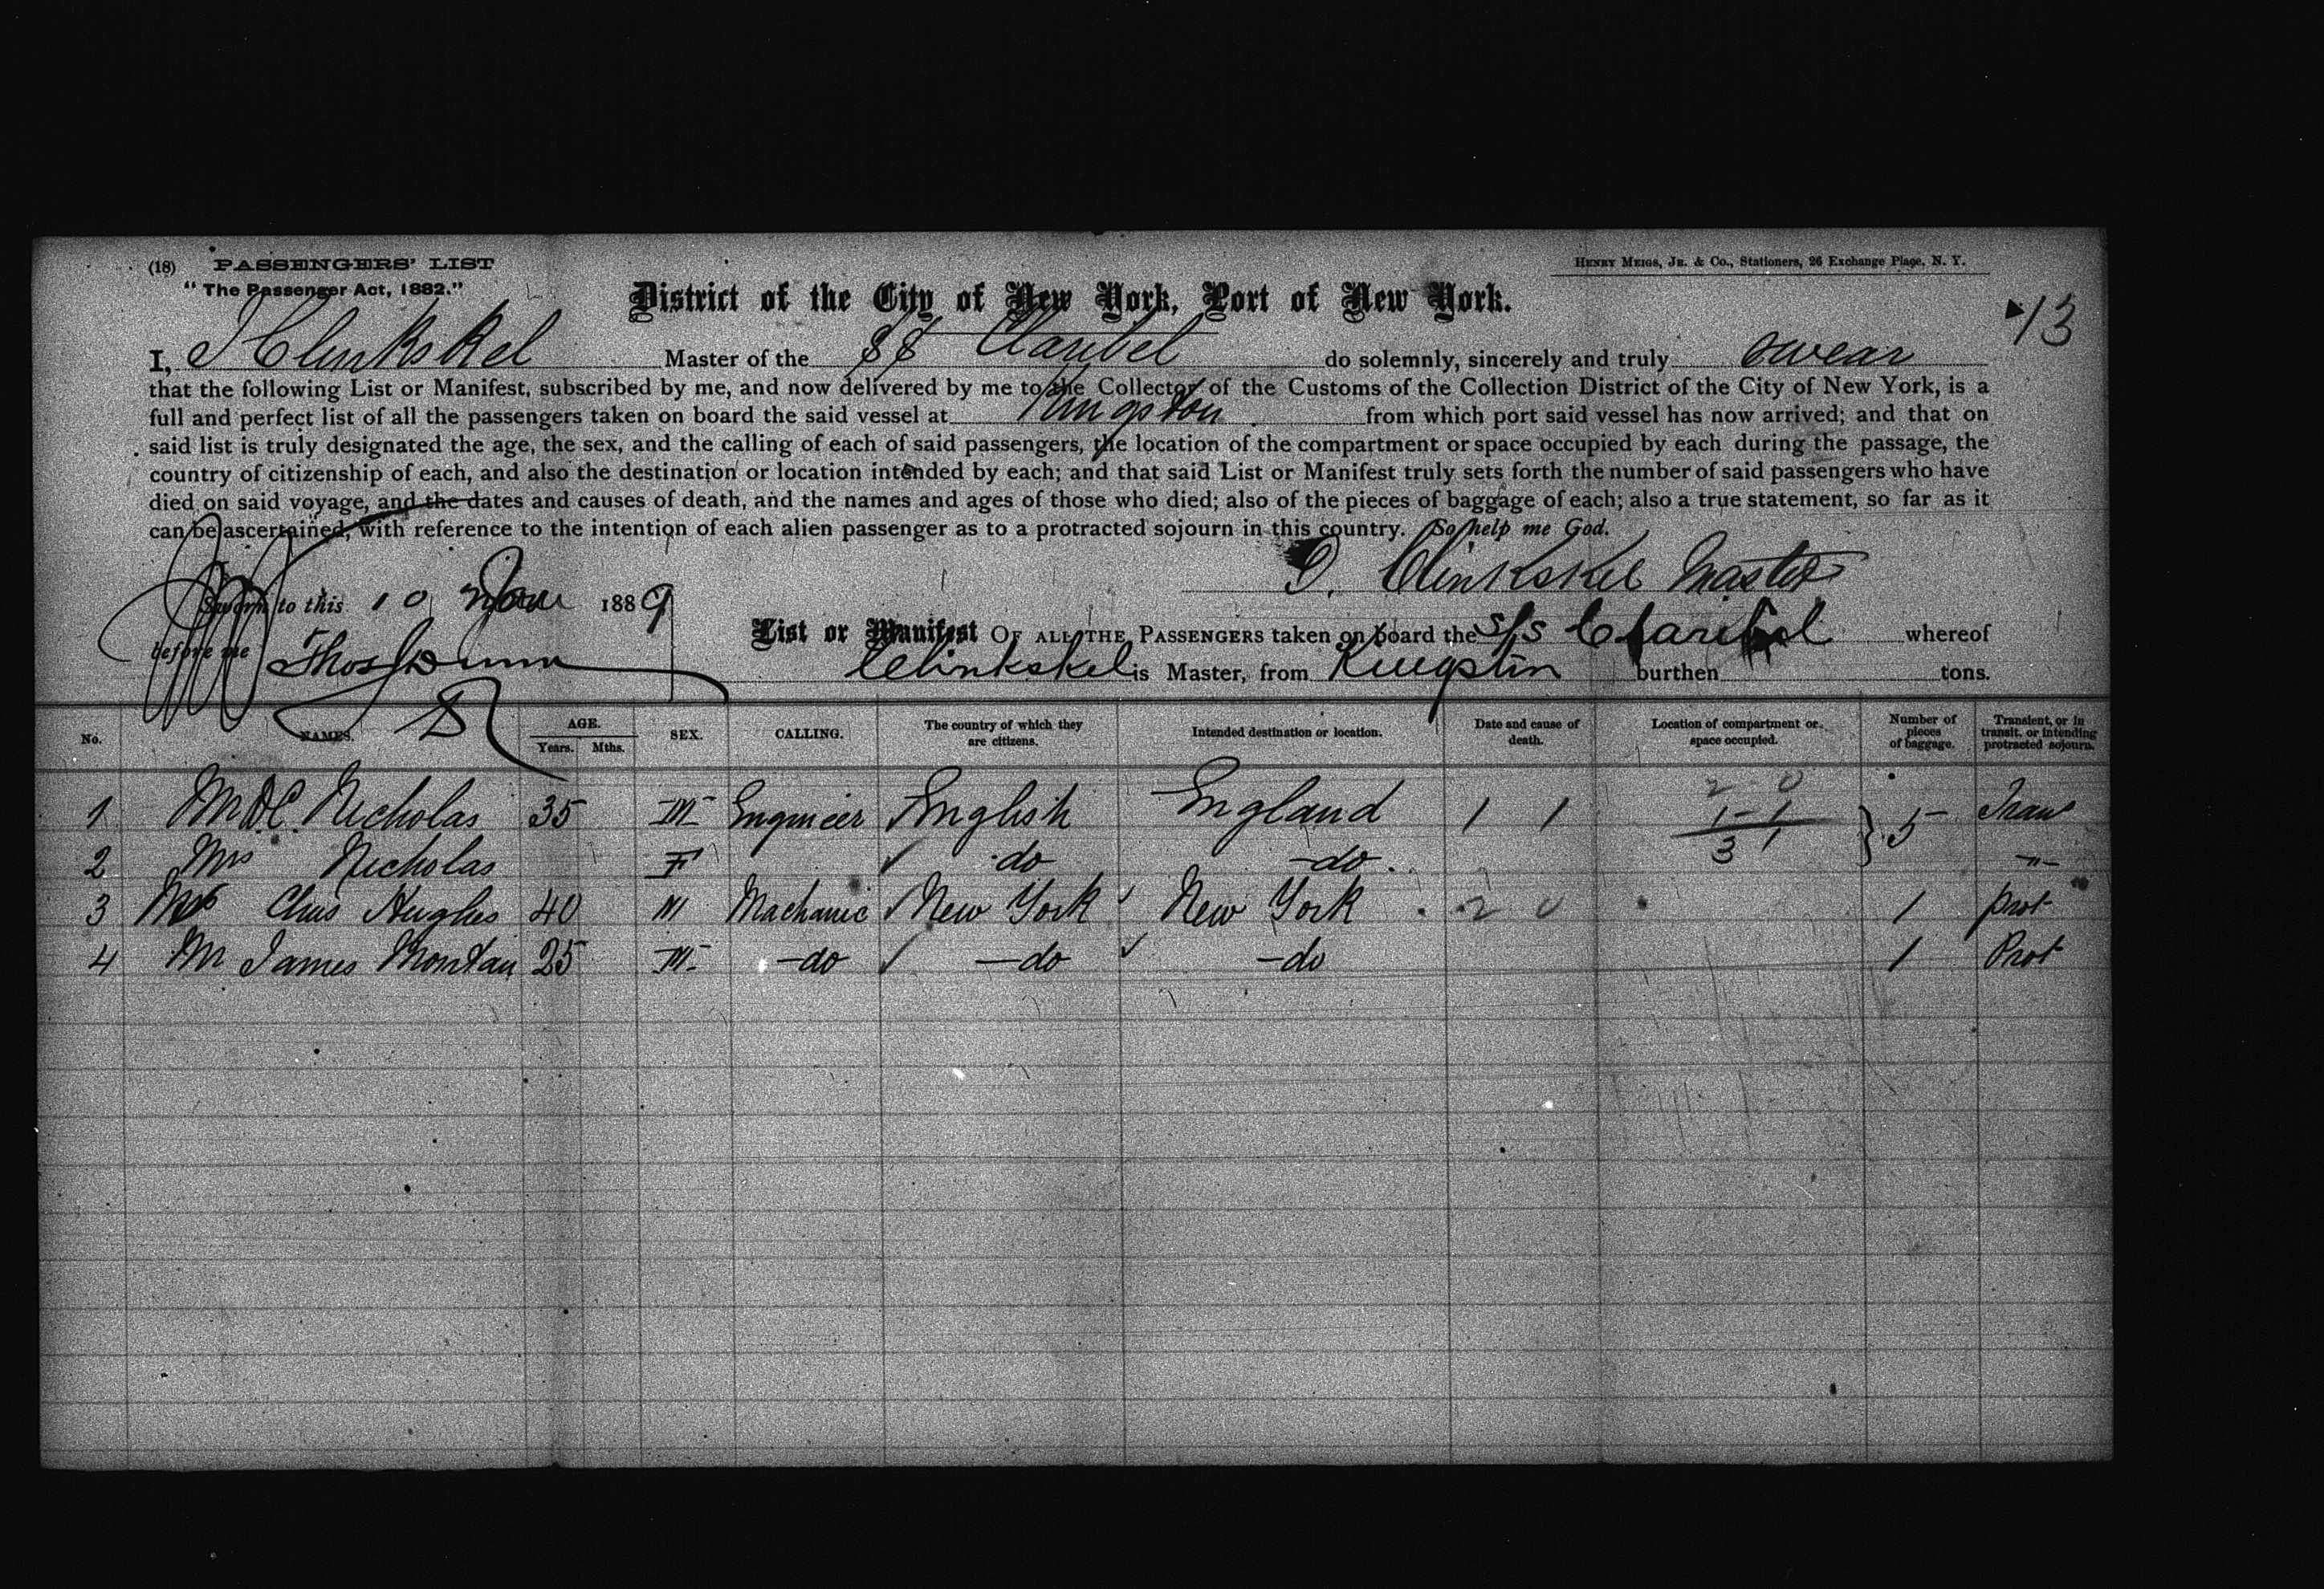 (18) PASSENGERS' LIST
"The Passenger Act, 1882."
HENRY MEIGS, JR. & CO., Stationers, 26 Exchange Place, N. Y.
District of the City of New York, Port of New York.
13
I, Clinkskel Master of the SS Claribel do solemnly, sincerely and truly swear
that the following List or Manifest, subscribed by me, and now delivered by me to the Collector of the Customs of the Collection District of the City of New York, is a
full and perfect list of all the passengers taken on board the said vessel at Kingston from which port said vessel has now arrived; and that on
said list is truly designated the age, the sex, and the calling of each of said passengers, the location of the compartment or space occupied by each during the passage, the
country of citizenship of each, and also the destination or location intended by each; and that said List or Manifest truly sets forth the number of said passengers who have
died on said voyage, and the dates and causes of death, and the names and ages of those who died; also of the pieces of baggage of each; also a true statement, so far as it
can be ascertained, with reference to the intention of each alien passenger as to a protracted sojourn in this country. So help me God.
Clinkskel Master
Sworn to this 10 1889
before me Thos Dunn
List or Manifest OF ALL THE PASSENGERS taken on board the S/S Claribel whereof
Clinkskel is Master, from Kingston burthen tons.
No. NAMES. AGE. Years. Mths. SEX. CALLING. The country of which they are citizens. Intended destination or location. Date and cause of death. Location of compartment or space occupied. Number of pieces of baggage. Transient, or in transit, or intending protracted sojourn.
2 0
1 Mr D.C. Nicholas 35 M Engineer English England 1 1 1 - 1 } 5 Tran
3 1
2 Mrs Nicholas F do do "
3 Mr Chas Hughes 40 M Machanic New York New York 2 0 1 Prot
4 Mr James 25 M do do do 1 Prot